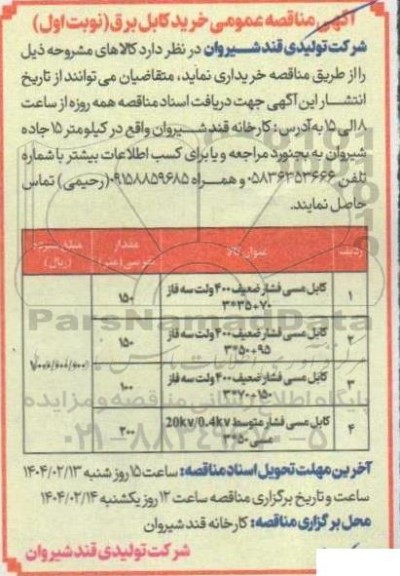 آگهی مناقصه عمومی خرید کابل برق (نوبت اول)
شرکت تولیدی قند شیروان در نظر دارد کالاهای مشروحه ذیل
را از طریق مناقصه خریداری نماید، متقاضیان می توانند از تاریخ
انتشار این آگهی جهت دریافت اسناد مناقصه همه روزه از ساعت
۸ الی ۱۵ به آدرس: کارخانه قند شیروان واقع در کیلومتر ۱۵ جاده
شیروان به بجنورد مراجعه و یا برای کسب اطلاعات بیشتر با شماره
تلفن ۰۵۸۳۶۳۵۳۶۶۶ و همراه ۰۹۱۵۸۸۵۹۶۸۵ (رحیمی) تماس
حاصل نمایند.
ردیف عنوان کالا مقدار تقریبی (متر) مبلغ سپرده (ریال)
۱ کابل مسی فشار ضعیف ۴۰۰ ولت سه فاز ۳*۳۵+۷۰ ۱۵۰
۲ کابل مسی فشار ضعیف ۴۰۰ ولت سه فاز ۳*۵۰+۹۵ ۱۵۰
۳ کابل مسی فشار ضعیف ۴۰۰ ولت سه فاز ۳*۷۰+۱۵۰ ۱۰۰
۴ کابل مسی فشار متوسط 20kv/0.4kv مسی ۵۰*۳ ۲۰۰
ParsNamadData
پایگاه اطلاع رسانی مناقصه و مزایده
۰۲۱-۸۸۳۴۹۶۷۰-۵
آخرین مهلت تحویل اسناد مناقصه: ساعت ۱۵ روز شنبه ۱۴۰۴/۰۲/۱۳
ساعت و تاریخ برگزاری مناقصه ساعت ۱۲ روز یکشنبه ۱۴۰۴/۰۲/۱۴
محل برگزاری مناقصه: کارخانه قند شیروان
شرکت تولیدی قند شیروان